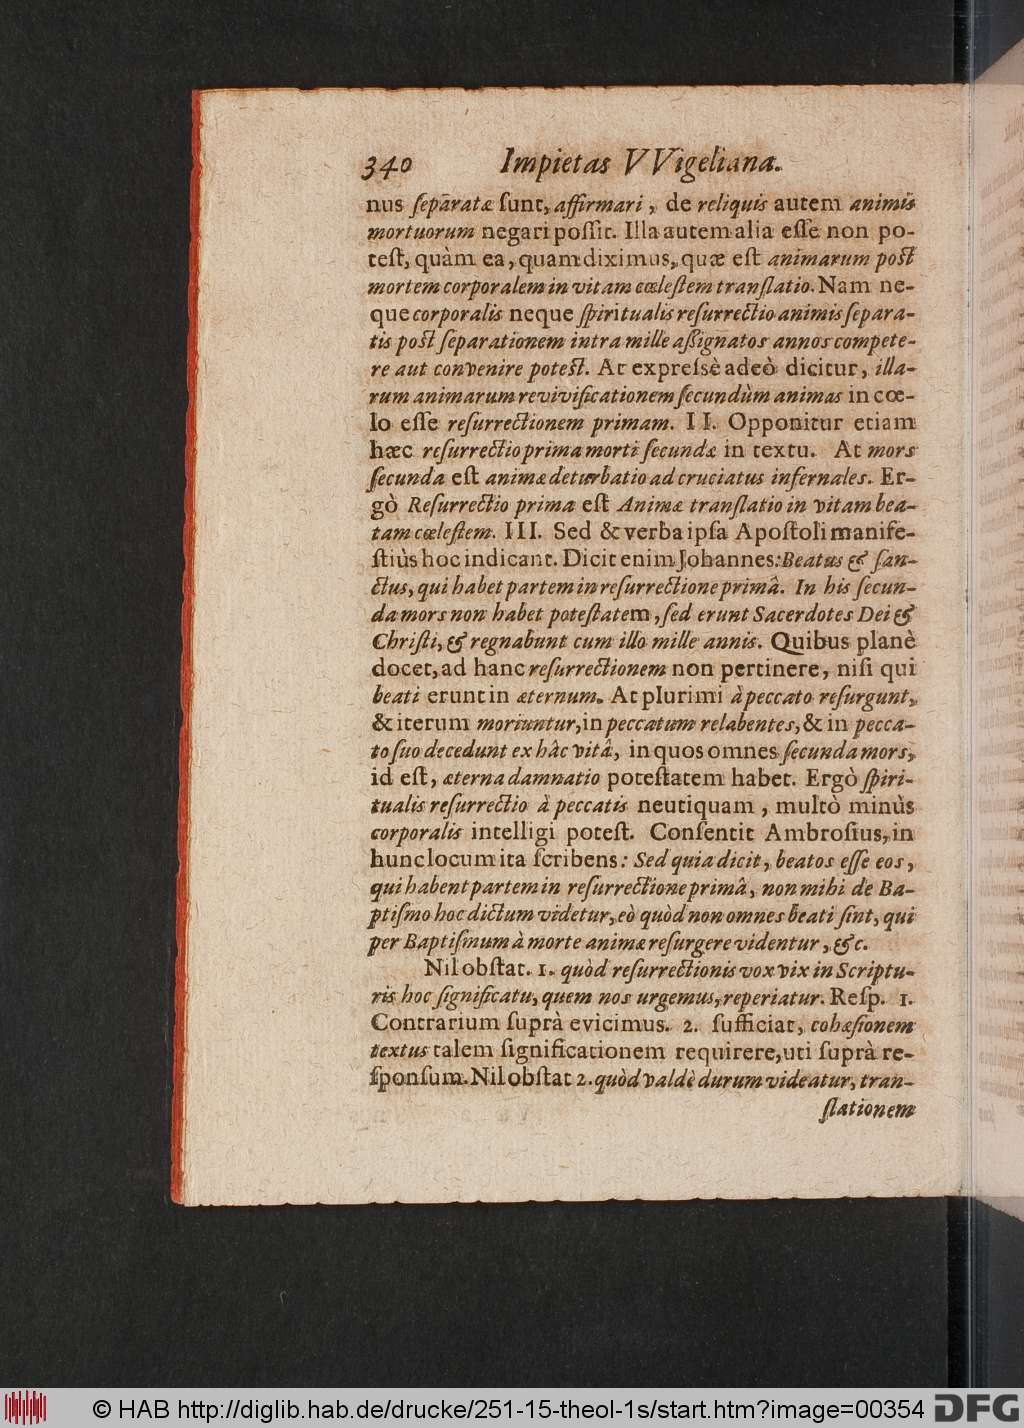 340 Impietas VVigeliana.
nus ſepāratæ ſunt, affirmari, de reliquis autem animis
mortuorum negari poſſit. Illa autem alia eſſe non po-
teſt, quàm ea, quam diximus, quæ eſt animarum poſt
mortem corporalem in vitam cœleſtem tranſlatio. Nam ne-
que corporalis neque ſpiritualis reſurrectio animis ſepara-
tis poſt ſeparationem intra mille aſſignatos annos compete-
re aut convenire poteſt. At expreſsè adeò dicitur, illa-
rum animarum revivificationem ſecundùm animas in cœ-
lo eſſe reſurrectionem primam. II. Opponitur etiam
hæc reſurrectio prima morti ſecundæ in textu. At mors
ſecunda eſt animæ deturbatio ad cruciatus infernales. Er-
gò Reſurrectio prima eſt Animæ tranſlatio in vitam bea-
tam cœleſtem. III. Sed & verba ipſa Apoſtoli manife-
ſtiùs hoc indicant. Dicit enim Johannes: Beatus & ſan-
ctus, qui habet partem in reſurrectione primâ. In his ſecun-
da mors non habet poteſtatem, ſed erunt Sacerdotes Dei &
Chriſti, & regnabunt cum illo mille annis. Quibus planè
docet, ad hanc reſurrectionem non pertinere, niſi qui
beati erunt in æternum. At plurimi à peccato reſurgunt,
& iterum moriuntur, in peccatum relabentes, & in pecca-
to ſuo decedunt ex hâc vitâ, in quos omnes ſecunda mors,
id eſt, æterna damnatio poteſtatem habet. Ergò ſpiri-
tualis reſurrectio à peccatis neutiquam, multò minùs
corporalis intelligi poteſt. Conſentit Ambroſius, in
hunc locum ita ſcribens: Sed quia dicit, beatos eſſe eos,
qui habent partem in reſurrectione primâ, non mihi de Ba-
ptiſmo hoc dictum videtur, eò quòd non omnes beati ſint, qui
per Baptiſmum à morte animæ reſurgere videntur, &c.
Nil obſtat. 1. quòd reſurrectionis vox vix in Scriptu-
ris hoc ſignificatu, quem nos urgemus, reperiatur. Reſp. 1.
Contrarium ſuprà evicimus. 2. ſufficiat, cohæſionem
textus talem ſignificationem requirere, uti ſuprà re-
ſponſum. Nil obſtat 2. quòd valdè durum videatur, tran-
ſlationem
© HAB http://diglib.hab.de/drucke/251-15-theol-1s/start.htm?image=00354
DFG